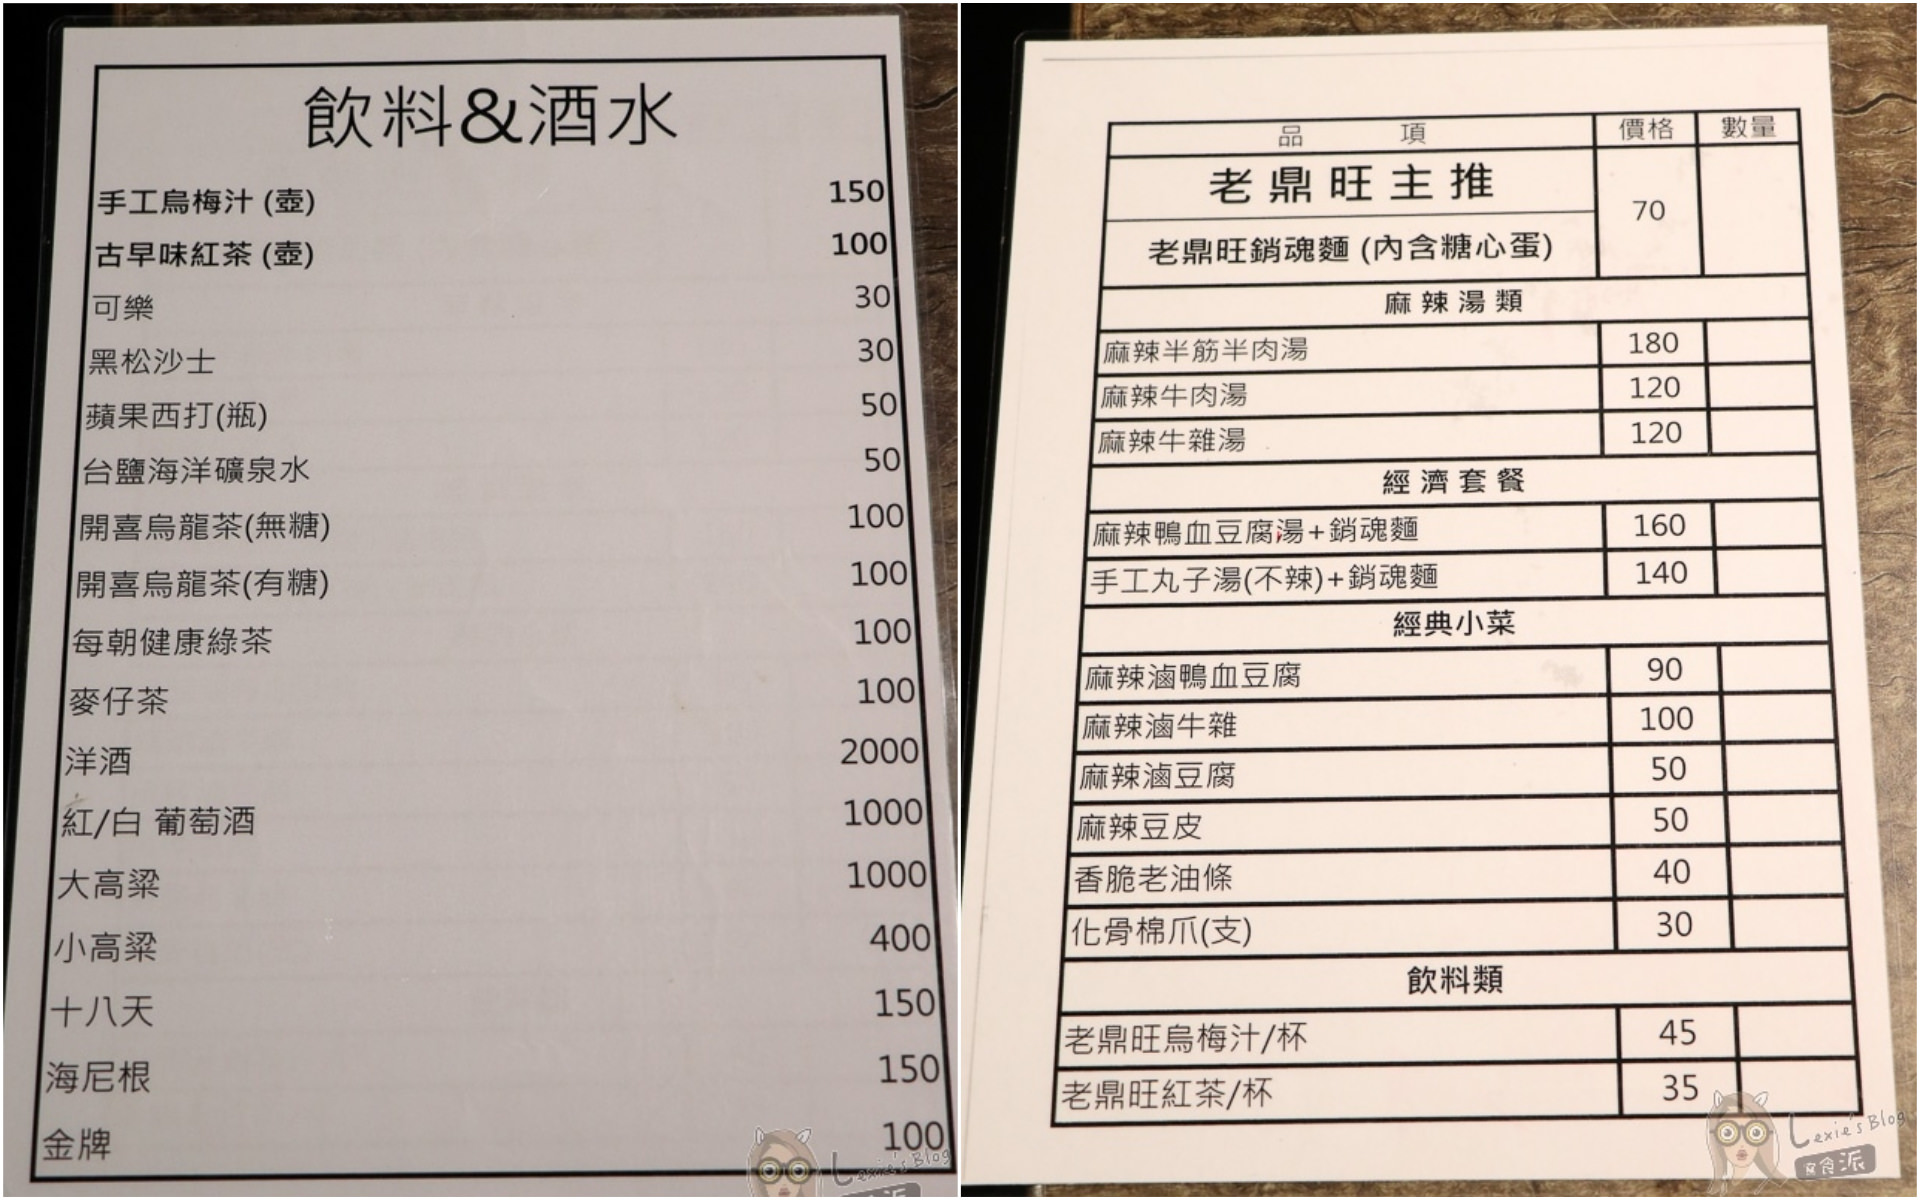 飲料&酒水
手工烏梅汁 (壺) 150
古早味紅茶 (壺) 100
可樂 30
黑松沙士 30
蘋果西打(瓶) 50
台鹽海洋礦泉水 50
開喜烏龍茶(無糖) 100
開喜烏龍茶(有糖) 100
每朝健康綠茶 100
麥仔茶 100
洋酒 2000
紅/白 葡萄酒 1000
大高粱 1000
小高粱 400
十八天 150
海尼根 150
金牌 100
Lexie's Blog
食派
品 項 價格 數量
老鼎旺主推
70
老鼎旺銷魂麵 (內含糖心蛋)
麻辣湯類
麻辣半筋半肉湯 180
麻辣牛肉湯 120
麻辣牛雜湯 120
經濟套餐
麻辣鴨血豆腐湯+銷魂麵 160
手工丸子湯(不辣)+銷魂麵 140
經典小菜
麻辣滷鴨血豆腐 90
麻辣滷牛雜 100
麻辣滷豆腐 50
麻辣豆皮 50
香脆老油條 40
化骨棉爪(支) 30
飲料類
老鼎旺烏梅汁/杯 45
老鼎旺紅茶/杯 35
Lexie's Blog
食派